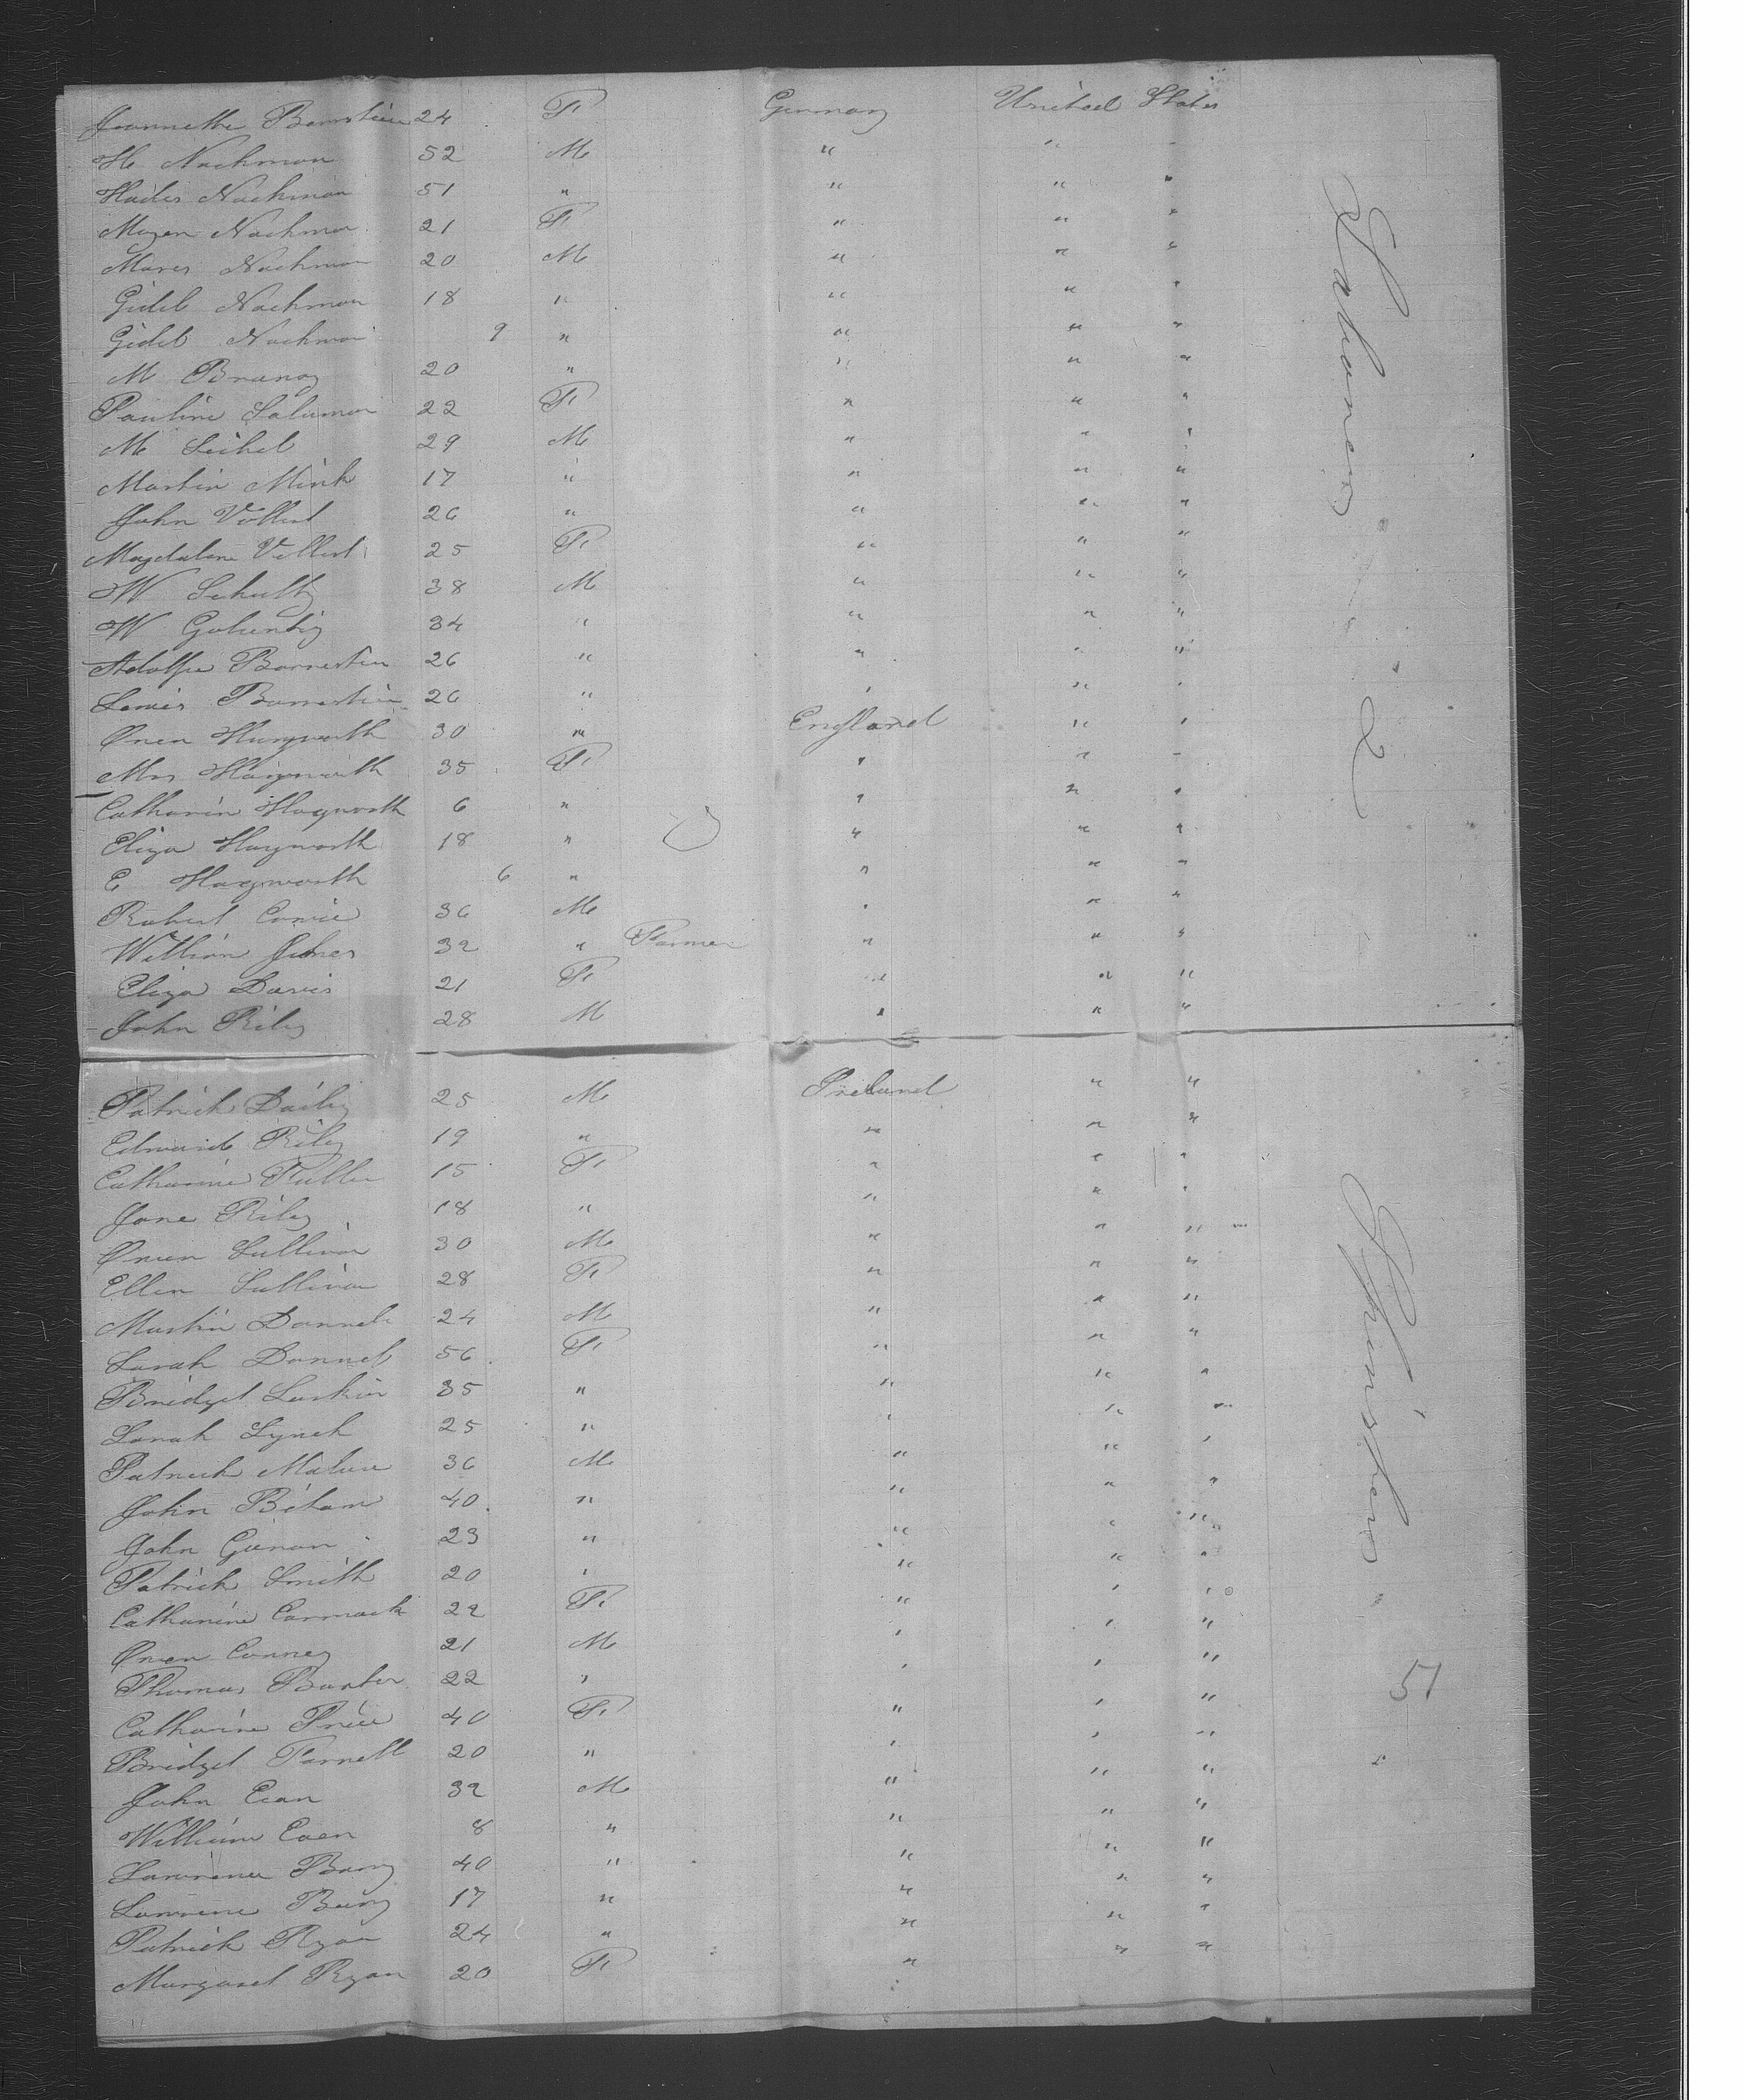 Jeannette Bernstein 24 F Germany United States
H Nachman 52 M " " "
Hades Nachman 51 " " " "
Nachman 21 F " " "
Mares Nachman 20 M " " "
Gidel Nachman 18 " " " "
Gidel Nachman 9 " " " "
M 20 " " " "
Pauline Salumon 22 F " " "
M Seihel 29 M " " "
Martin Mink 17 " " " "
John Vollert 26 " " " "
Magdalene Vollert 25 F " " "
W Schultz 38 M " " "
W 34 " " " "
Adolphe Bornestein 26 " " " "
Lewis 26 " " " "
Owen 30 " England " "
Mrs 35 F " " "
Catharin Hagworth 6 " " " "
Eliza Hagworth 18 " " " "
E Hagworth 6 " " " "
Robert 36 M " " "
William Jones 32 " Farmer " " "
Eliza Davis 21 F " " "
John Riley 28 M " " "
Patrick Daily 25 M Ireland " "
Edward Riley 19 " " " "
Catharine 15 F " " "
Jane Riley 18 " " " "
Owen Sullivan 30 M " " "
Ellen Sullivan 28 F " " "
Martin Donnel 24 M " " "
Sarah Donnel 56 F " " "
Bridget Larkin 35 " " " "
Sarah Lynch 25 " " " "
Patrick Malone 36 M " " "
John 40 " " " "
John 23 " " " "
Patrick Smith 20 " " " "
Catharine Cormack 22 F " " "
Owen Conney 21 M " " "
Thomas Baxter 22 " " " "
Catharine Price 40 F " " "
Bridget Farnell 20 " " " "
John Eean 32 M " " "
William Eaen 8 " " " "
Lawrence 40 " " " "
Lawrence 17 " " " "
Patrick Ryan 24 " " " "
Margaret Ryan 20 F " " "
Labourers
2
Spinsters
51